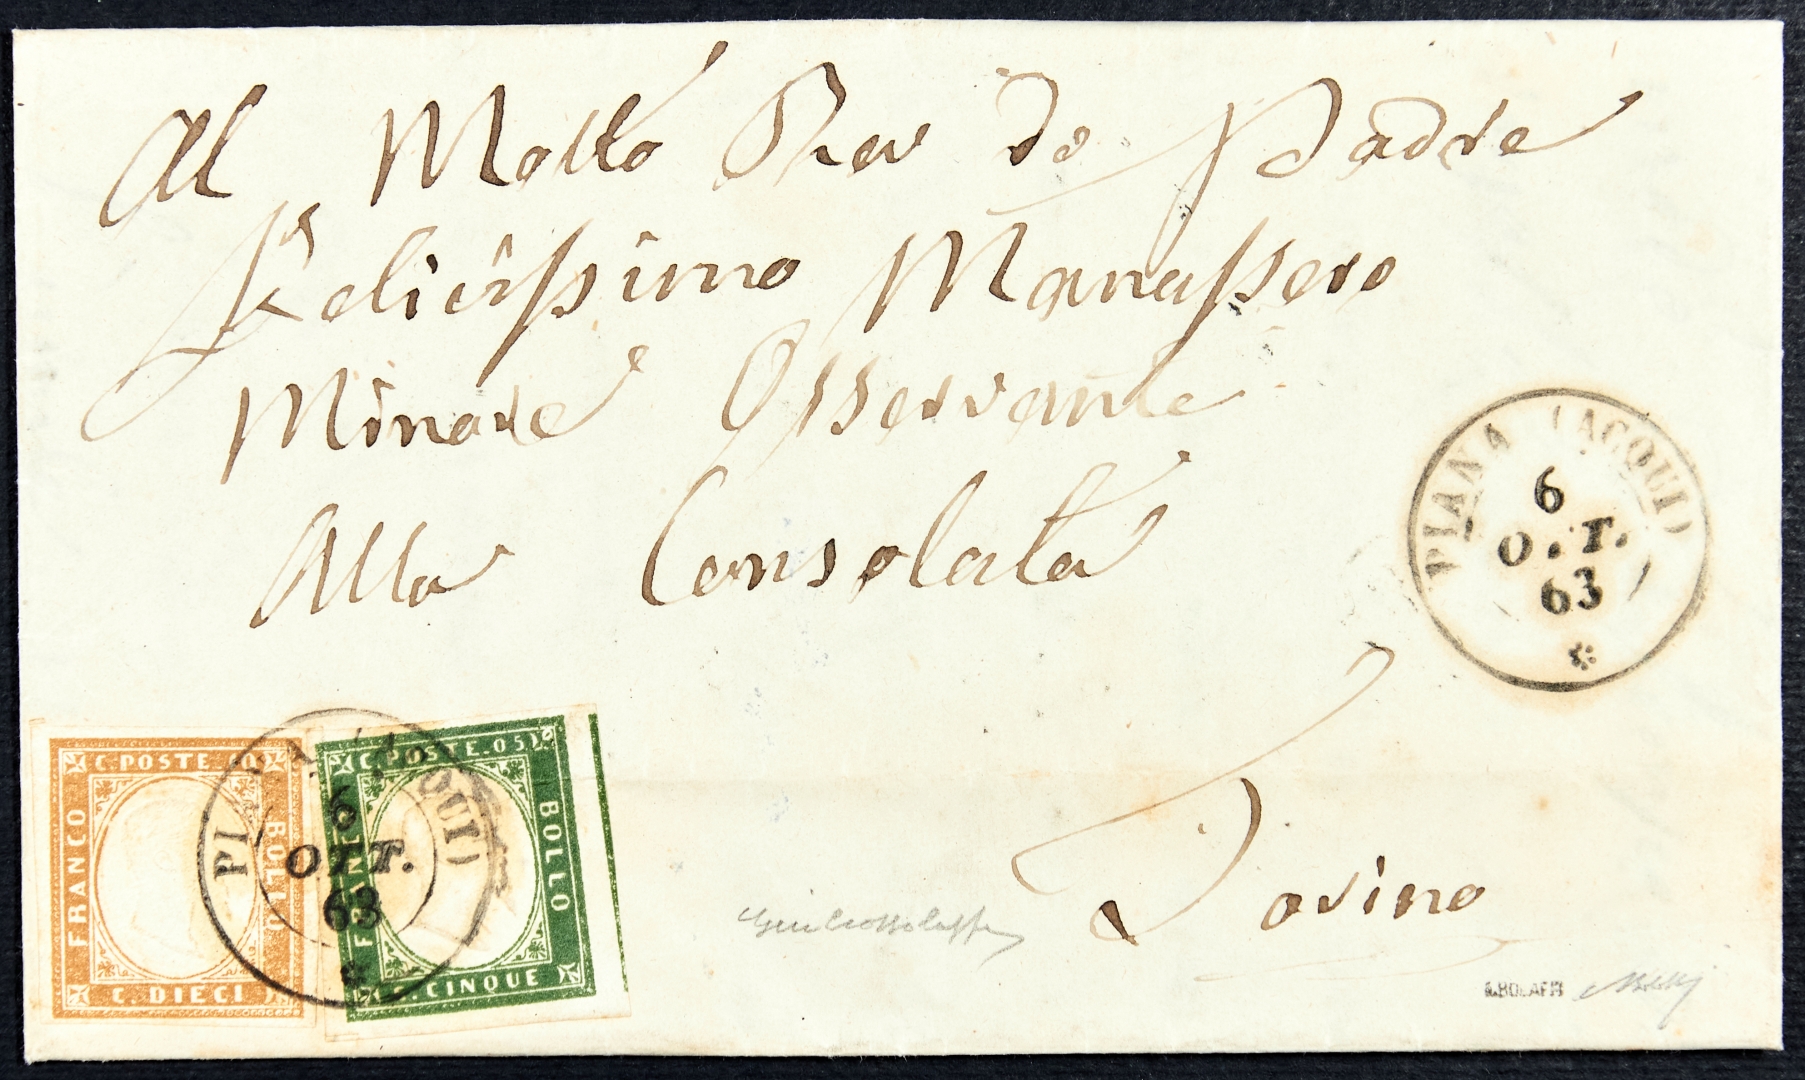 Al Molto Rev do Padre
Felicissimo Manassero
Minore Osservante
Alla Consolata
Torino
PIANA (ACQUI)
6
OTT.
63
C. POSTE. 10
FRANCO
BOLLO
C. DIECI
PIANA (ACQUI)
6
OTT.
63
C. POSTE. 05
FRANCO
BOLLO
C. CINQUE
A.BOLAFFI